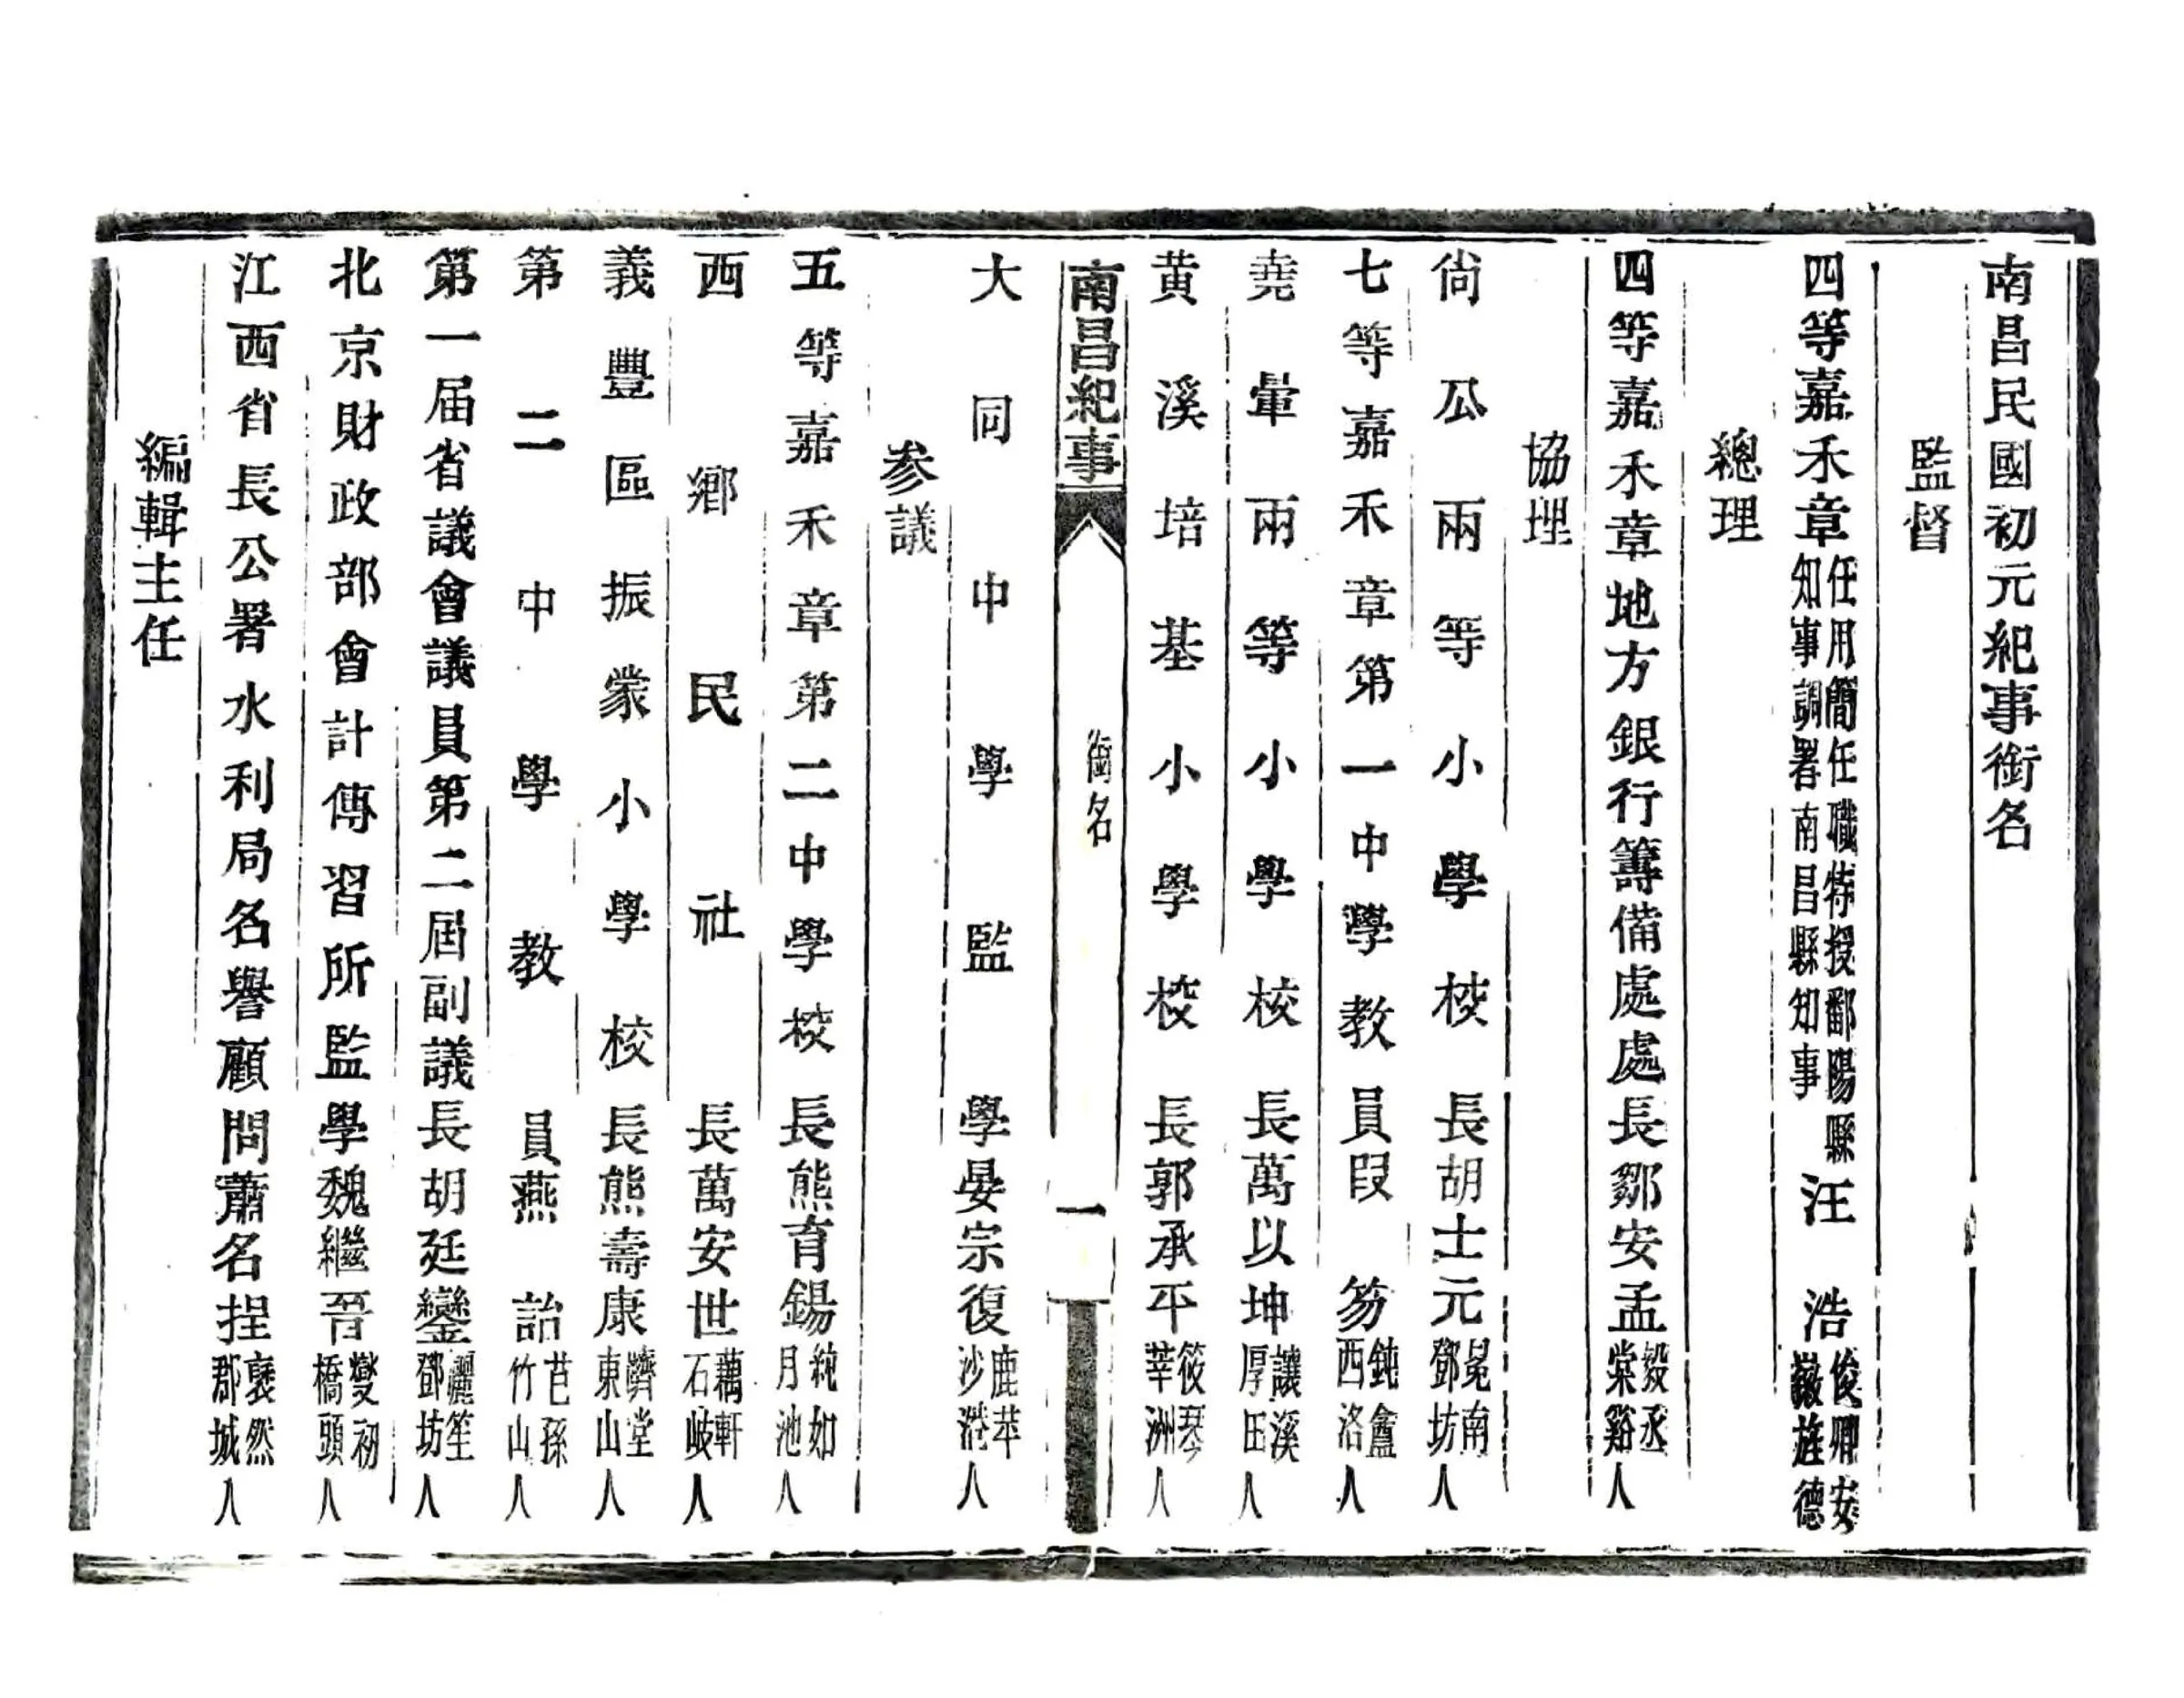 南昌民國初元紀事銜名
監督
四等嘉禾章任用簡任職特授鄱陽縣知事調署南昌縣知事汪 浩俊卿安徽旌德
總理
四等嘉禾章地方銀行籌備處處長鄒安孟毅丞棠谿人
協理
尙瓜兩等小學校長胡士元冕南鄧坊人
七等嘉禾章第一中學教員段 笏鈍盦西洛人
堯暈兩等小學校長萬以坤讓溪厚田人
黄溪培基小學校長郭承平筱琴莘洲人
南昌紀事
銜名
一
大同中學監學晏宗復鹿苹沙港人
参議
五等嘉禾章第二中學校長熊育鍚純如月池人
西鄉民社長萬安世藕軒石岐人
義豐區振蒙小學校長熊壽康躋堂東山人
第二中學教員燕 詒芑孫竹山人
第一届省議會議員第二屆副議長胡廷鑾麗笙鄧坊人
北京財政部會計傳習所監學魏繼晉燮初橋頭人
江西省長公署水利局名譽顧問蕭名揑襃然郡城人
編輯主任